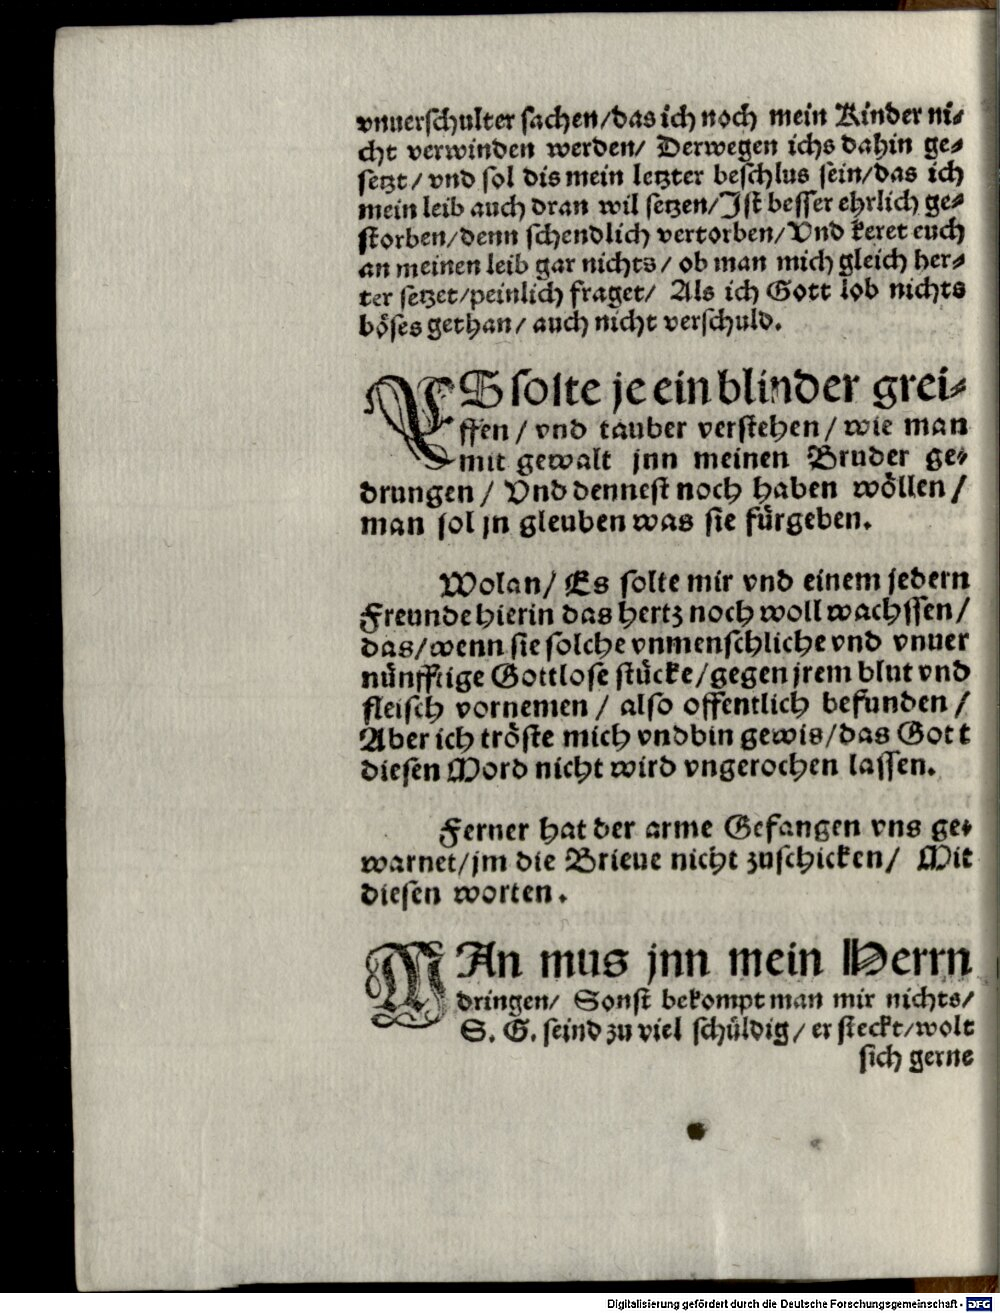 vnuerschulter sachen/das ich noch mein Kinder ni⸗
cht verwinden werden/ Derwegen ichs dahin ge⸗
setzt/ vnd sol dis mein letzter beschlus sein/das ich
mein leib auch dran wil setzen/Jst besser ehrlich ge⸗
storben/denn schendlich vertorben/Vnd keret euch
an meinen leib gar nichts/ ob man mich gleich her⸗
ter setzet/peinlich fraget/ Als ich Gott lob nichts
böses gethan/ auch nicht verschuld.
ES solte je ein blinder grei⸗
ffen/ vnd tauber verstehen/ wie man
mit gewalt jnn meinen Bruder ge⸗
drungen/ Vnd dennest noch haben wöllen/
man sol jn gleuben was sie fürgeben.
Wolan/ Es solte mir vnd einem jedern
Freunde hierin das hertz noch woll wachssen/
das/wenn sie solche vnmenschliche vnd vnuer
nünfftige Gottlose stücke/gegen jrem blut vnd
fleisch vornemen/ also offentlich befunden/
Aber ich tröste mich vndbin gewis/das Gott
diesen Mord nicht wird vngerochen lassen.
Ferner hat der arme Gefangen vns ge⸗
warnet/jm die Brieue nicht zuschicken/ Mit
diesen worten.
MAn mus jnn mein Herrn
dringen/ Sonst bekompt man mir nichts/
S. G. seind zu viel schüldig/ er steckt/wolt
sich gerne
Digitalisierung gefördert durch die Deutsche Forschungsgemeinschaft - DFG